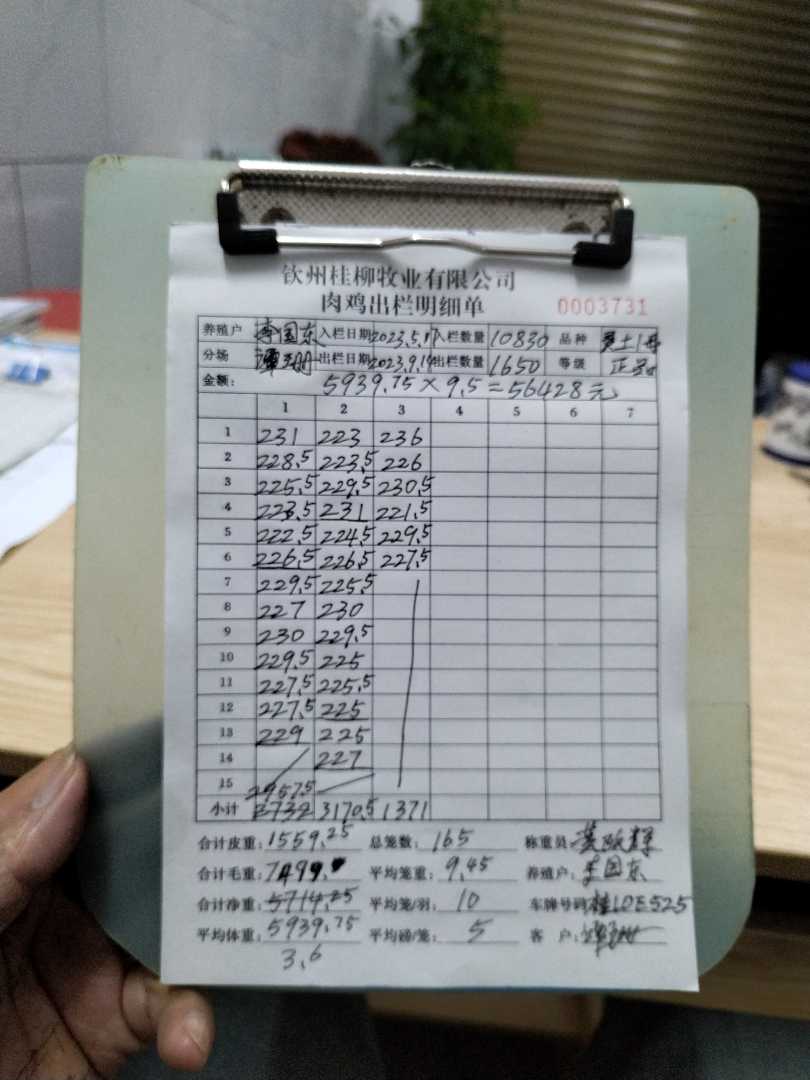 钦州桂柳牧业有限公司
肉鸡出栏明细单 0003731
养殖户 李国东 入栏日期 2023.5.17 入栏数量 10830 品种
分场 出栏日期 2023.9.19 出栏数量 1650 等级 正
金额: 5939.75×9.5=56428元
1 2 3 4 5 6 7
1 231 223 236
2 228.5 223.5 226
3 225.5 229.5 230.5
4 223.5 231 221.5
5 222.5 224.5 229.5
6 226.5 226.5 227.5
7 229.5 225.5
8 227 230
9 230 229.5
10 229.5 225
11 227.5 225.5
12 227.5 225
13 229 225
14 227
15 2957.5
小计 2732 3170.5 1371
合计皮重: 1559.25 总笼数: 165 称重员:
合计毛重: 7499. 平均笼重: 9.45 养殖户: 李国东
合计净重: 5714.25 平均笼/羽: 10 车牌号码: 桂10E525
平均体重: 5939.75 平均磅/笼: 5 客 户:
3.6